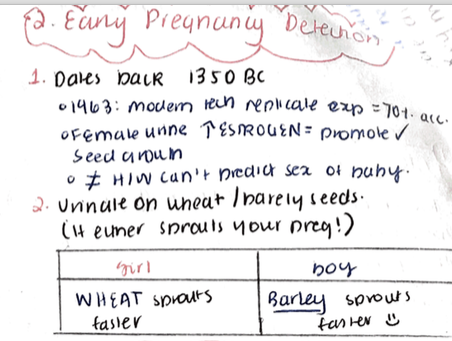 2. Early Pregnancy Detection
1. Dates back 1350 BC
◦ 1963: modern tech replicate exp = 70% acc.
◦ Female urine ↑ ESTROGEN = promote ✓
seed growth
◦ ≠ H/W can't predict sex of baby.
2. urinate on wheat / barely seeds.
(If either sprouts your preg!)
girl boy
WHEAT sprouts Barley sprouts
faster faster